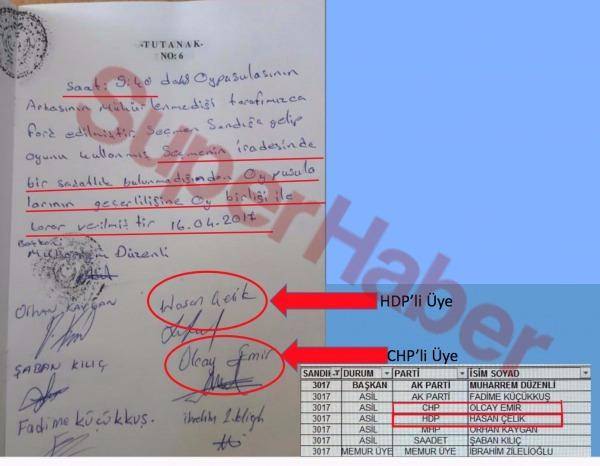 -TUTANAK-
NO: 6
Saat: 8:40 daki Oypusulasının
Arkasının Mühürlenmediği tarafımızca
fark edilmiştir. Seçmen Sandığa gelip
oyunu kullanmış Seçmenin iradesinde
bir sakatlık bulunmadığından Oypusula
larının geçerliliğine Oy birliği ile
karar verilmiştir 16.04.2017
Başkan
Muharrem Düzenli
Hasan Çelik
ORHAN KAYGAN
Olcay Emir
ŞABAN KILIÇ
Fadime Küçükkuş.
İbrahim
SuperHaber
HDP'li Üye
CHP'li Üye
SANDI DURUM PARTİ İSİM SOYAD
3017 BAŞKAN AK PARTİ MUHARREM DÜZENLİ
3017 ASİL AK PARTİ FADİME KÜÇÜKKUŞ
3017 ASİL CHP OLCAY EMİR
3017 ASİL HDP HASAN ÇELİK
3017 ASİL MHP ORHAN KAYGAN
3017 ASİL SAADET ŞABAN KILIÇ
3017 MEMUR ÜYE MEMUR ÜYE İBRAHİM ZİLELİOĞLU